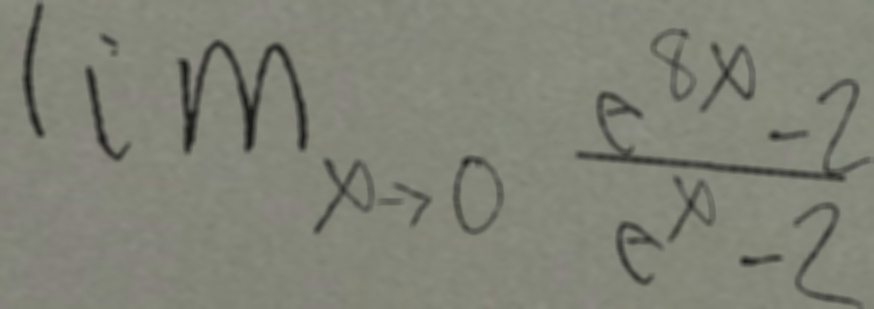 lim_{x→0} \frac{e^{8x}-2}{e^{x}-2}